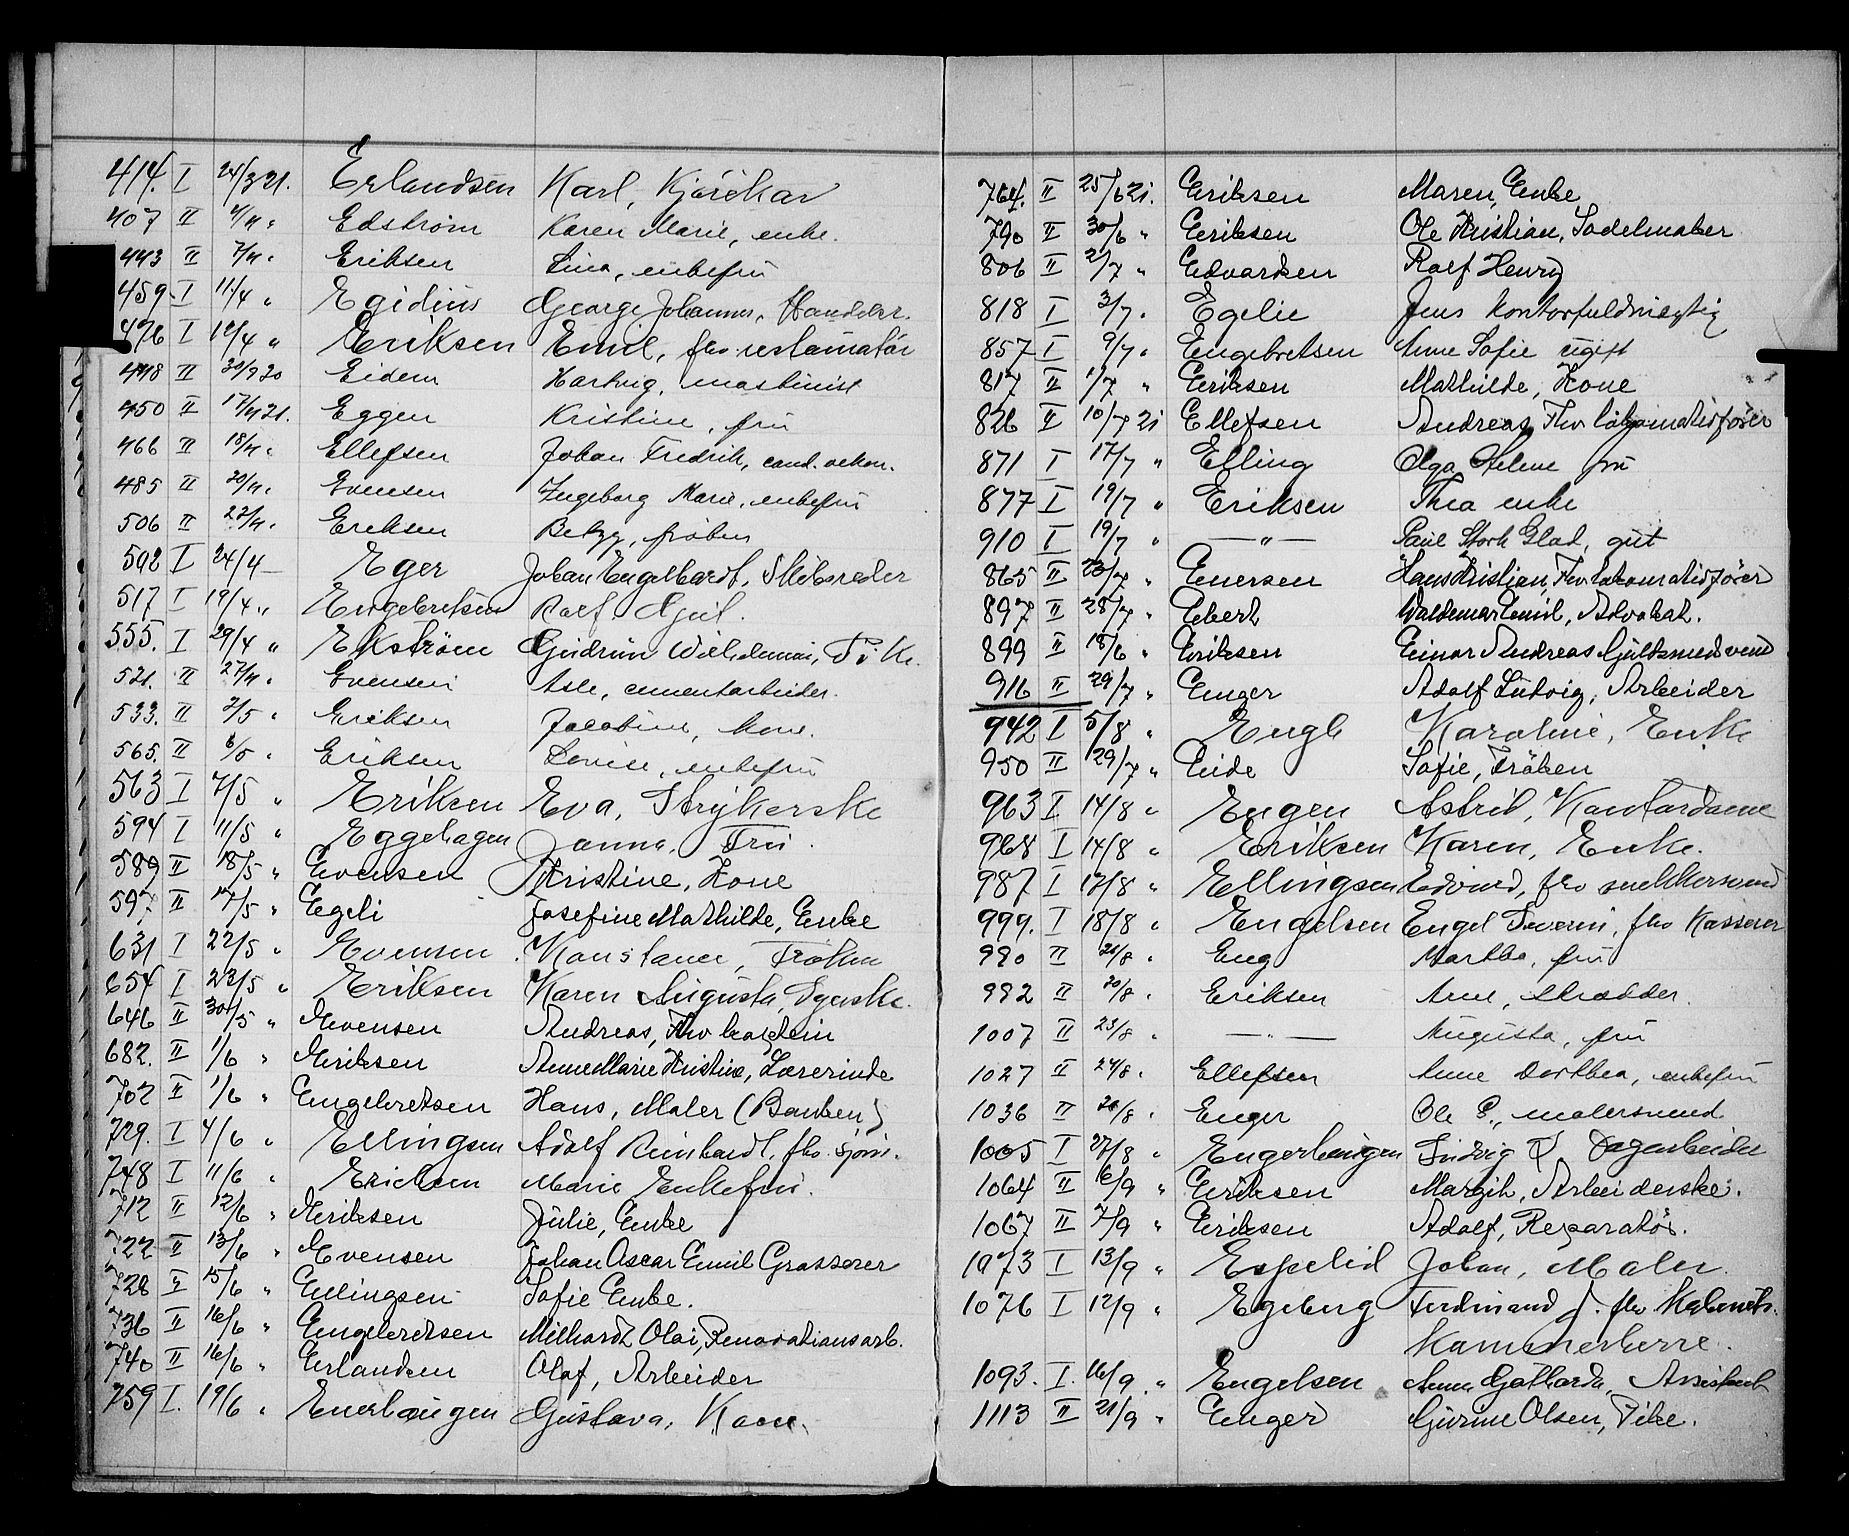 414. I 24/3 21. Erlandsen Karl, Kjørekar
407 II 4/4 " Edstrøm Karen Marie, enke.
443 II 7/4 " Eriksen Lina, enkefru
459. I 11/4 " Egidius George Johannes, Handelsr.
476 I 12/4 " Eriksen Emil, fhv. restauratør
448 II 30/9 20 Eidem Hartvig, maskinist
450 II 17/4 21. Eggen Kristine, fru
466 II 18/4 " Ellefsen Johan Fredrik, cand. oekon.
485 II 20/4 " Evensen Ingeborg Marie, enkefru
506 II 22/4 " Eriksen Betzy, frøken
592 I 24/4 — Eger Johan Engelhardt, Skibsreder
517 I 19/4 " Engebretsen Rolf. Gjul.
555. I 29/4 " Ekstrøm Gudrun Wilhelmine, Pike.
521. II 27/4 " Evensen Asle, cementarbeider.
533. II 2/5 " Eriksen Jacobine, kone.
565. II 6/5 " Eriksen Lovise, enkefru
563 I 7/5 " Eriksen Eva, Strykerske
594 I 11/5 " Eggehagen Janna, Fru.
589 II 18/5 " Evensen Kristine, Kone
597 II 17/5 " Egeli Josefine Mathilde, Enke
631 I 22/5 " Evensen Konstance, Frøken
654 I 23/5 " Eriksen Karen Augusta, Syerske.
646 II 30/5 " Evensen Andreas, Fhv kaptein
682. II 1/6 " Eriksen Anne Marie Kristine, Lærerinde
702 II 1/6 " Engebretsen Hans, Maler (Banken)
729. I 4/6 " Ellingsen Adolf Reinhardt, fhv. sjøm.
748 I 11/6 " Ericksen Marie Enkefru.
712 II 12/6 " Eriksen Julie, Enke
722 II 13/6 " Evensen Johan Oscar Emil Grosserer
728 II 15/6 " Ellingsen Sofie Enke.
736 II 16/6 " Engebretsen Milhardt Olai, Renovationsarb.
740 II 16/6 " Erlandsen Olaf, Arbeider
759 I. 19/6 " Enerhaugen Gustava, Kone.
764. II 25/6 21. Eriksen Maren, Enke
790 II 30/6 " Eriksen Ole Kristian, Sadelmaker
806 II 2/7 " Edvardsen Rolf Henry
818 I 3/7 " Egelie Jens kontorfuldmægtig
857 I 9/7 " Engebretsen Anne Sofie ugift
817 II 1/7 " Eriksen Mathilde, Kone
826 II 10/7 21 Ellefsen Andreas, Fhv lokomotivfører
871 I 17/7 " Elling Olga Helene fru
877 I 19/7 " Eriksen Thea enke
910 I 19/7 " — " — Paul Stork Glad, gut
865 II 23/7 " Enersen Hans Kristian, Fhv lokomotivfører
897 II 28/7 " Ebert Waldemar Emil, Advokat.
899 II 18/6 " Eriksen Einar Andreas Guldsmedsvend
916 II 29/7 " Enger Adolf Ludvig, Arbeider
942 I 5/8 " Engh Karoline, Enke
950 II 29/7 " Eide Sofie, Frøken
963 I 14/8 " Engen Astrid, Kontordame
968 I 14/8 " Eriksen Karen, Enke.
987 I 17/8 " Ellingsen Edvind, fhv snekkersvend
999. I 18/8 " Engelsen Engel Severin, fhv Kasserer
980 II 21/8 " Eng Martha, fru
992 II 20/8 " Eriksen Arne, skrædder.
1007 II 23/8 " — " — Augusta, fru
1027 II 24/8 " Ellefsen Anne Dorthea, enkefru
1036 II 26/8 " Enger Ole E., malersvend
1005 I 27/8 " Engerhaugen Ludvig Dagarbeider
1064 II 6/9 " Eriksen Margit, Arbeiderske.
1067 II 7/9 " Eriksen Adolf, Reparatør.
1073 I 13/9 " Espelid Johan, Maler
1076 I 12/9 " Egeberg Ferdinand J. fhv Kabinets.
Kammerherre.
1093. I. 16/9 " Engelsen Anna Gotharda, Assistent
1113 II 21/9 " Enger Gurine Olsen, Pike.